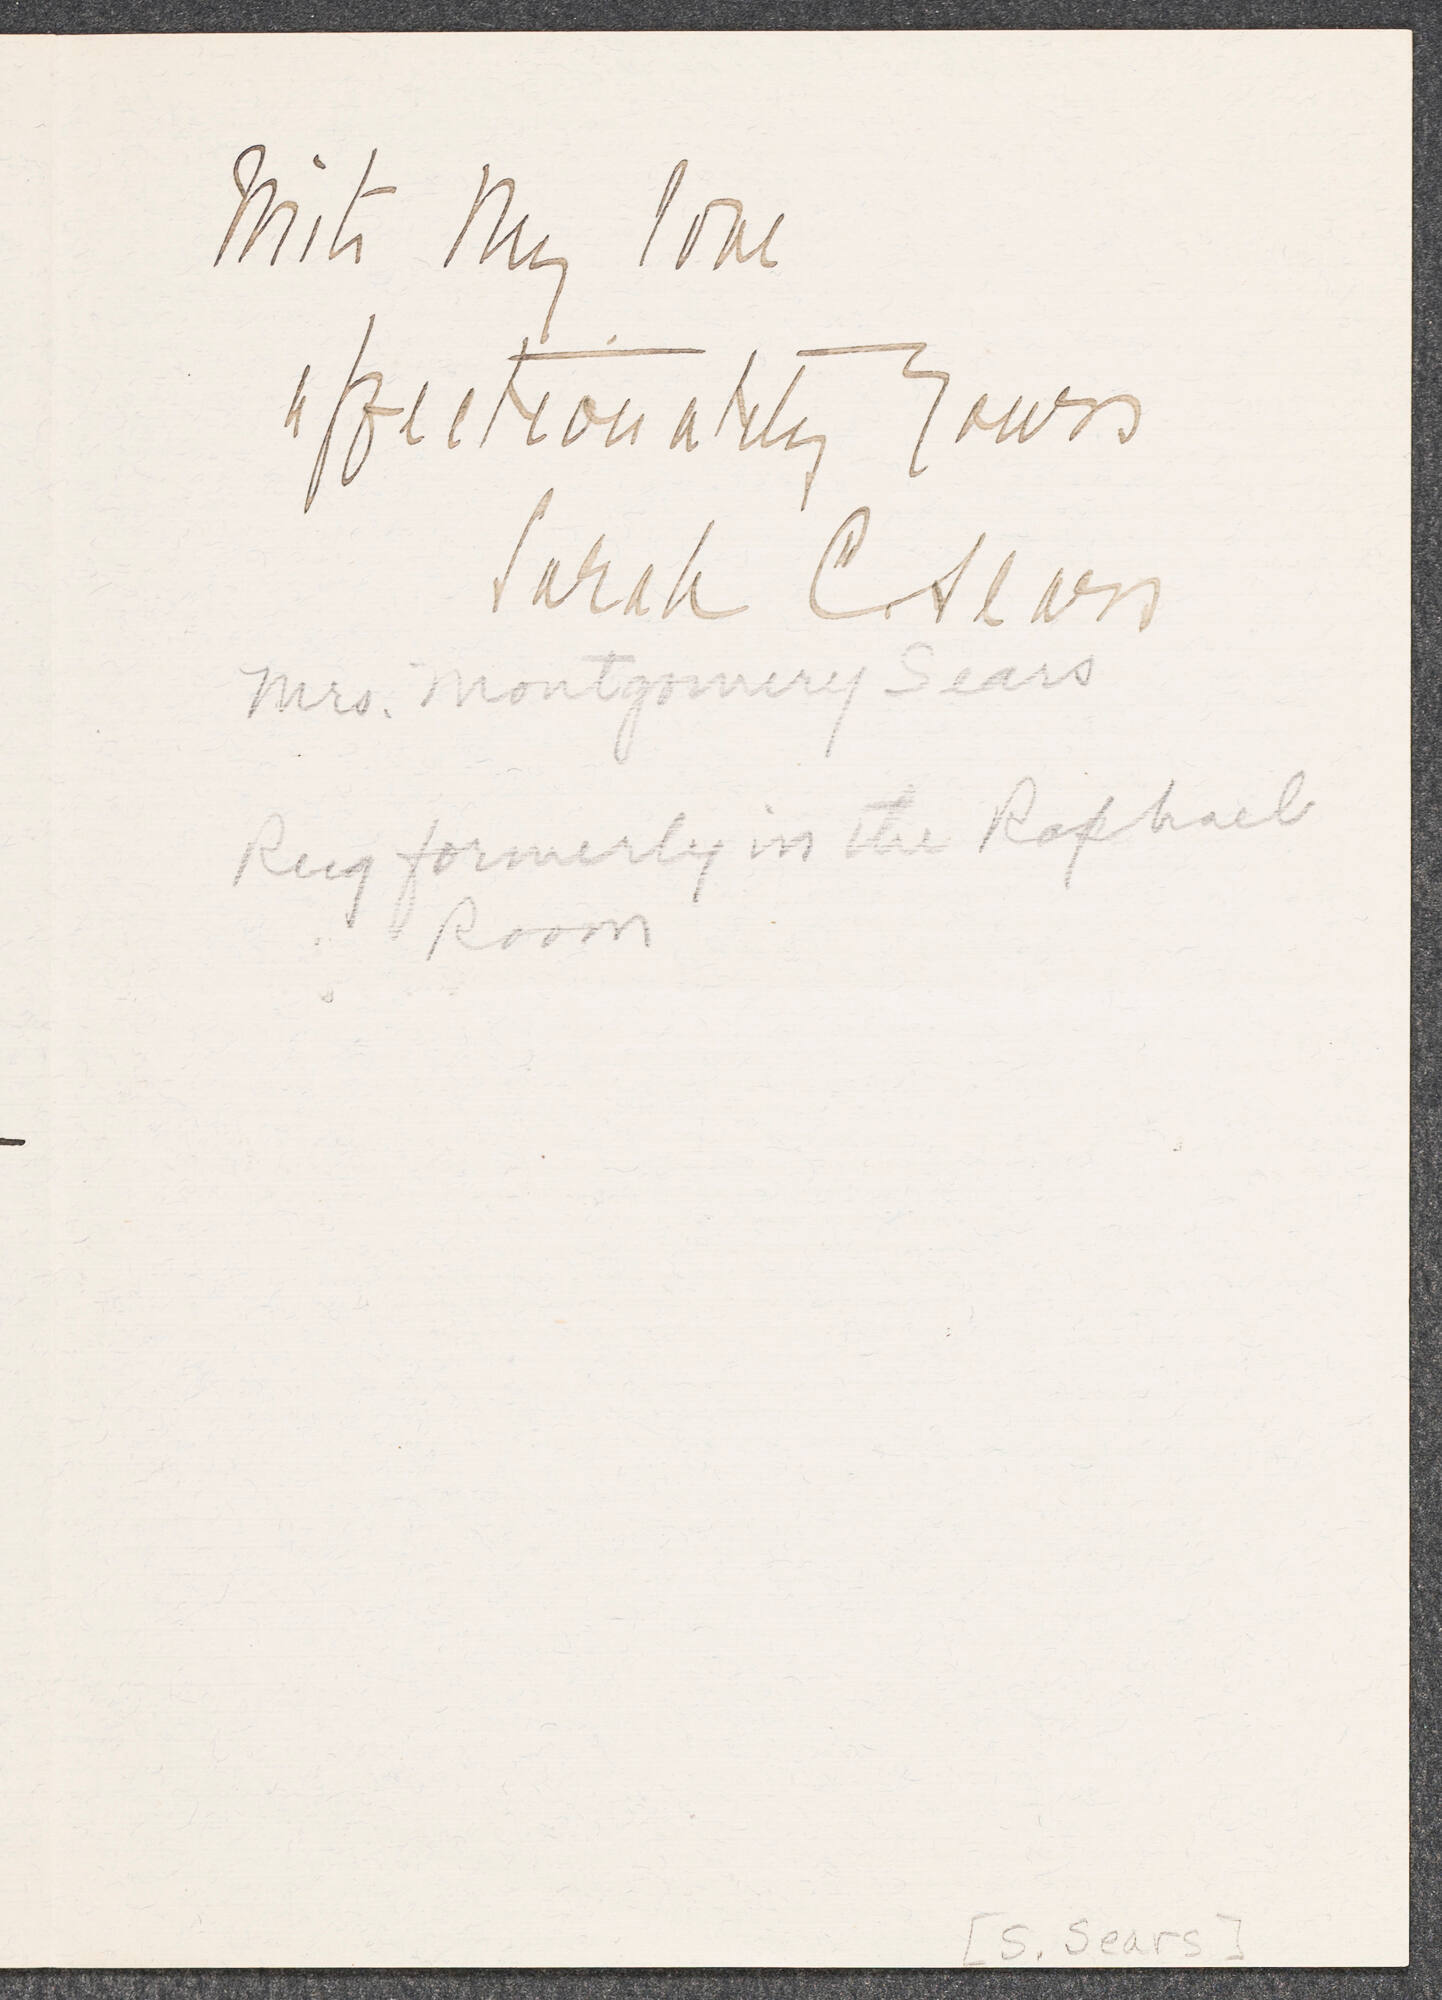 With my love
affectionately yours
Sarah C. Sears
Mrs. Montgomery Sears
Rug formerly in the Raphael
Room
[S. Sears]